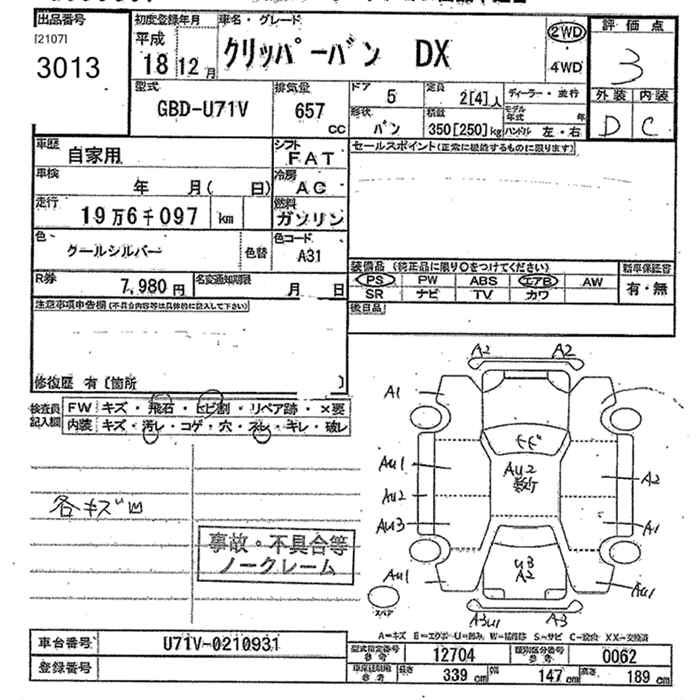 出品番号 初度登録年月 車名・グレード 評価点
[2107] 平成
3013 18 12月 クリッパーバン DX 2WD 4WD 3
型式 排気量 ドア 定員 ディーラー・並行 外装 内装
GBD-U71V 657 5 2[4]人 モデル年式 年 D C
cc 形状 バン 積載 350[250]kg ハンドル 左・右
車歴 自家用 シフト FAT セールスポイント(正常に機能するものに限ります)
車検 年 月( 日) 冷房 AC
走行 19万6千097 km 燃料 ガソリン
色 クールシルバー 色替 色コード A31
装備品 (純正品に限り○をつけてください) 新車保証書
R券 7,980円 名変通知期限 月 日 PS PW ABS エアB AW 有・無
SR ナビ TV カワ
注意事項申告欄(不具合内容等は具体的に記入して下さい) 後日品
修復歴 有〔箇所 〕
検査員記入欄 FW キズ・飛石・ヒビ割・リペア跡・×要
内装 キズ・汚レ・コゲ・穴・スレ・キレ・破レ
各キズ凹
事故・不具合等
ノークレーム
A2 A2
A1
AU1 AU2 A2
AU2
AU3 A1
U3
A2
AU1 AU1
スペア A3U1 A3
A=キズ E=エクボ U=凹み W=補修跡 S=サビ C=腐食 XX=交換済
車台番号 U71V-0210931 型式指定番号 参考 12704 類別区分番号 参考 0062
登録番号 参考 長さ 339cm 幅 147cm 高さ 189cm